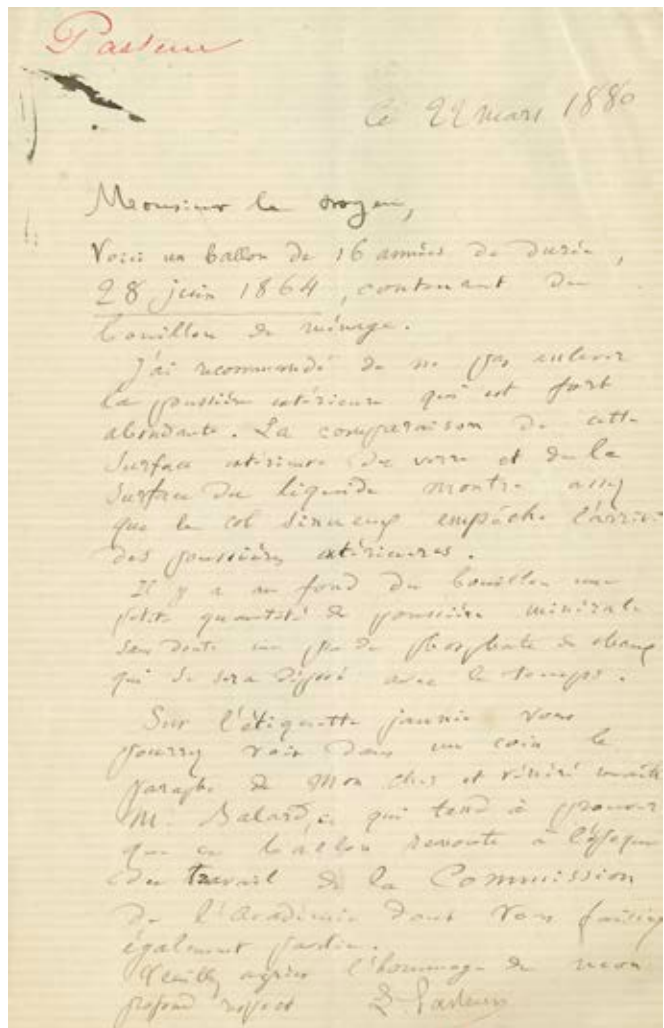 Pasteur
le 22 mars 1880
Monsieur le Doyen,
Voici un ballon de 16 années de durée,
28 juin 1864, contenant du
bouillon de ménage.
J'ai recommandé de ne pas enlever
la poussière extérieure qui est fort
abondante. La comparaison de cette
surface extérieure du verre et de la
surface du liquide montre assez
que le col sinueux empêche l'arrivée
des poussières extérieures.
Il y a au fond du bouillon une
petite quantité de poussière minérale
sans doute un peu de phosphate de chaux
qui se sera déposé avec le temps.
Sur l'étiquette jaunie vous
pourrez voir dans un coin le
paraphe de mon cher et vénéré maître
M. Balard, ce qui tend à prouver
que ce ballon remonte à l'époque
du travail de la Commission
de l'Académie dont vous faisiez
également partie.
Veuillez agréer l'hommage de mon
profond respect L. Pasteur